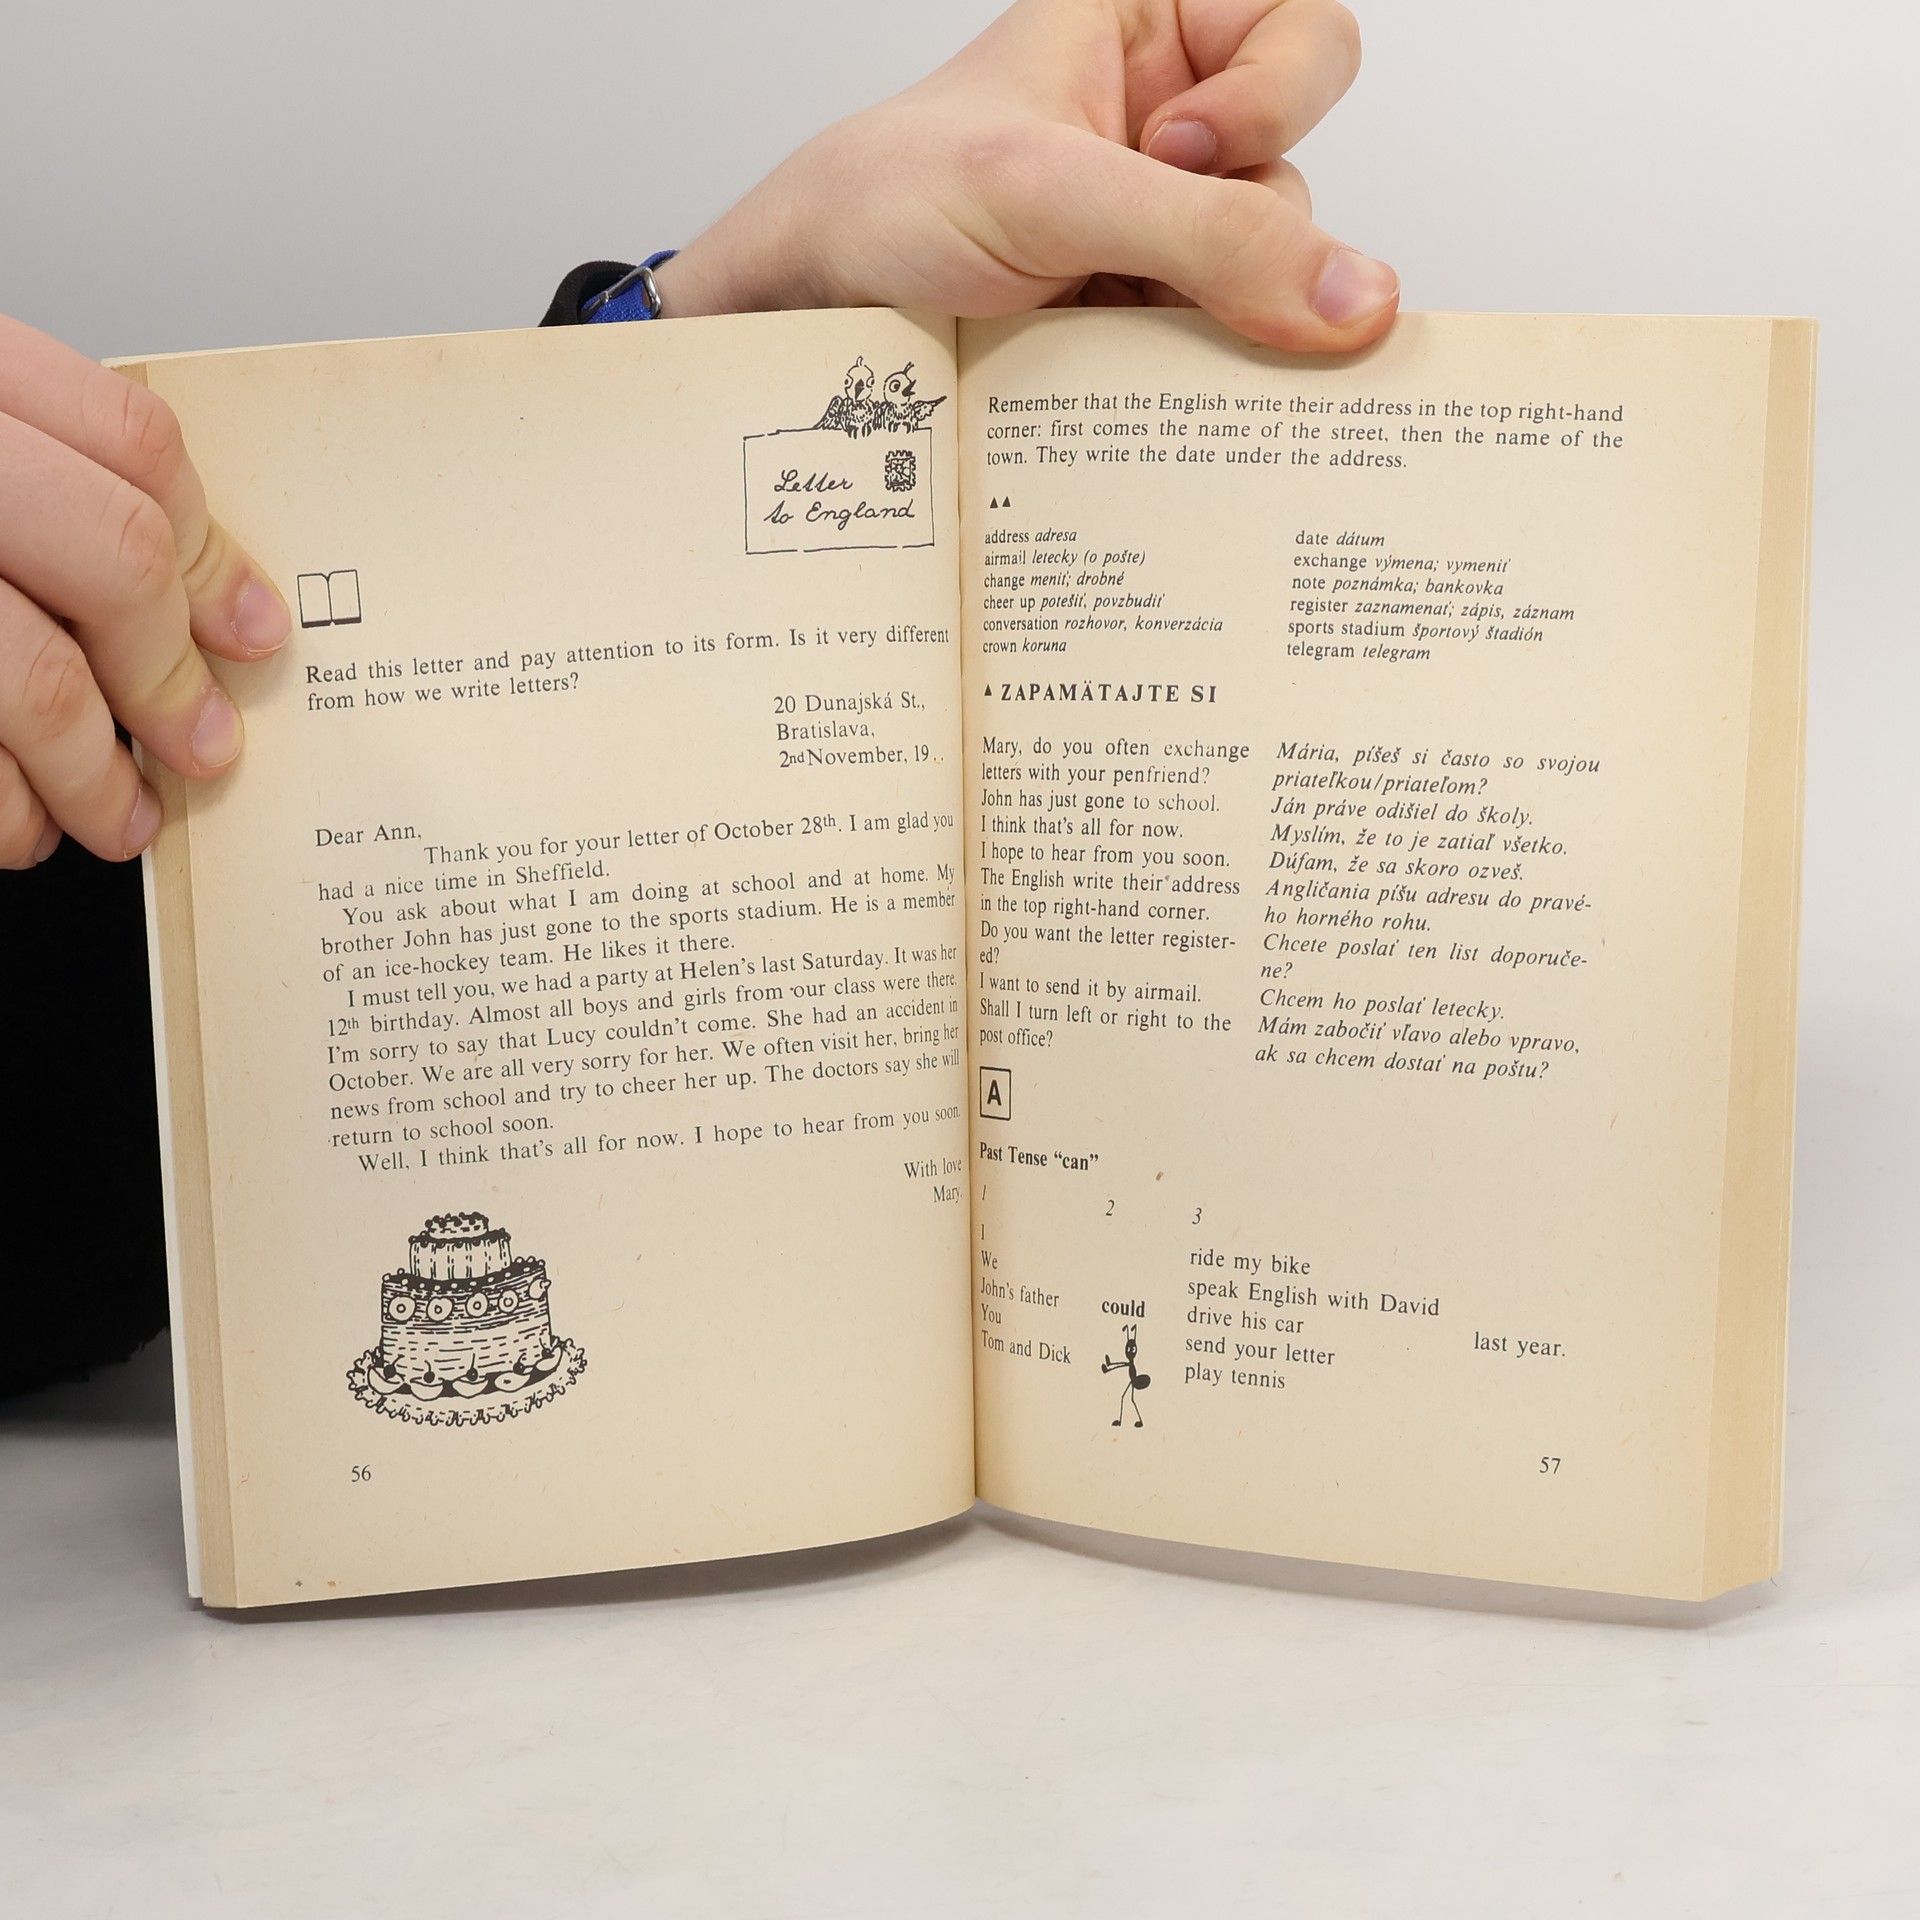 Letter
to England
Read this letter and pay attention to its form. Is it very different
from how we write letters?
20 Dunajská St.,
Bratislava,
2nd November, 19..
Dear Ann,
Thank you for your letter of October 28th. I am glad you
had a nice time in Sheffield.
You ask about what I am doing at school and at home. My
brother John has just gone to the sports stadium. He is a member
of an ice-hockey team. He likes it there.
I must tell you, we had a party at Helen's last Saturday. It was her
12th birthday. Almost all boys and girls from our class were there.
I'm sorry to say that Lucy couldn't come. She had an accident in
October. We are all very sorry for her. We often visit her, bring her
news from school and try to cheer her up. The doctors say she will
return to school soon.
Well, I think that's all for now. I hope to hear from you soon.
With love
Mary.
56
Remember that the English write their address in the top right-hand
corner: first comes the name of the street, then the name of the
town. They write the date under the address.
address adresa
airmail letecky (o pošte)
change meniť; drobné
cheer up potešiť, povzbudiť
conversation rozhovor, konverzácia
crown koruna
date dátum
exchange výmena; vymeniť
note poznámka; bankovka
register zaznamenať; zápis, záznam
sports stadium športový štadión
telegram telegram
ZAPAMÄTAJTE SI
Mary, do you often exchange
letters with your penfriend?
John has just gone to school.
I think that's all for now.
I hope to hear from you soon.
The English write their address
in the top right-hand corner.
Do you want the letter register-
ed?
I want to send it by airmail.
Shall I turn left or right to the
post office?
Mária, píšeš si často so svojou
priateľkou/priateľom?
Ján práve odišiel do školy.
Myslím, že to je zatiaľ všetko.
Dúfam, že sa skoro ozveš.
Angličania píšu adresu do pravé-
ho horného rohu.
Chcete poslať ten list doporuče-
ne?
Chcem ho poslať letecky.
Mám zabočiť vľavo alebo vpravo,
ak sa chcem dostať na poštu?
A
Past Tense "can"
1 2 3
I
We
John's father
You
Tom and Dick
could
ride my bike
speak English with David
drive his car
send your letter
play tennis
last year.
57